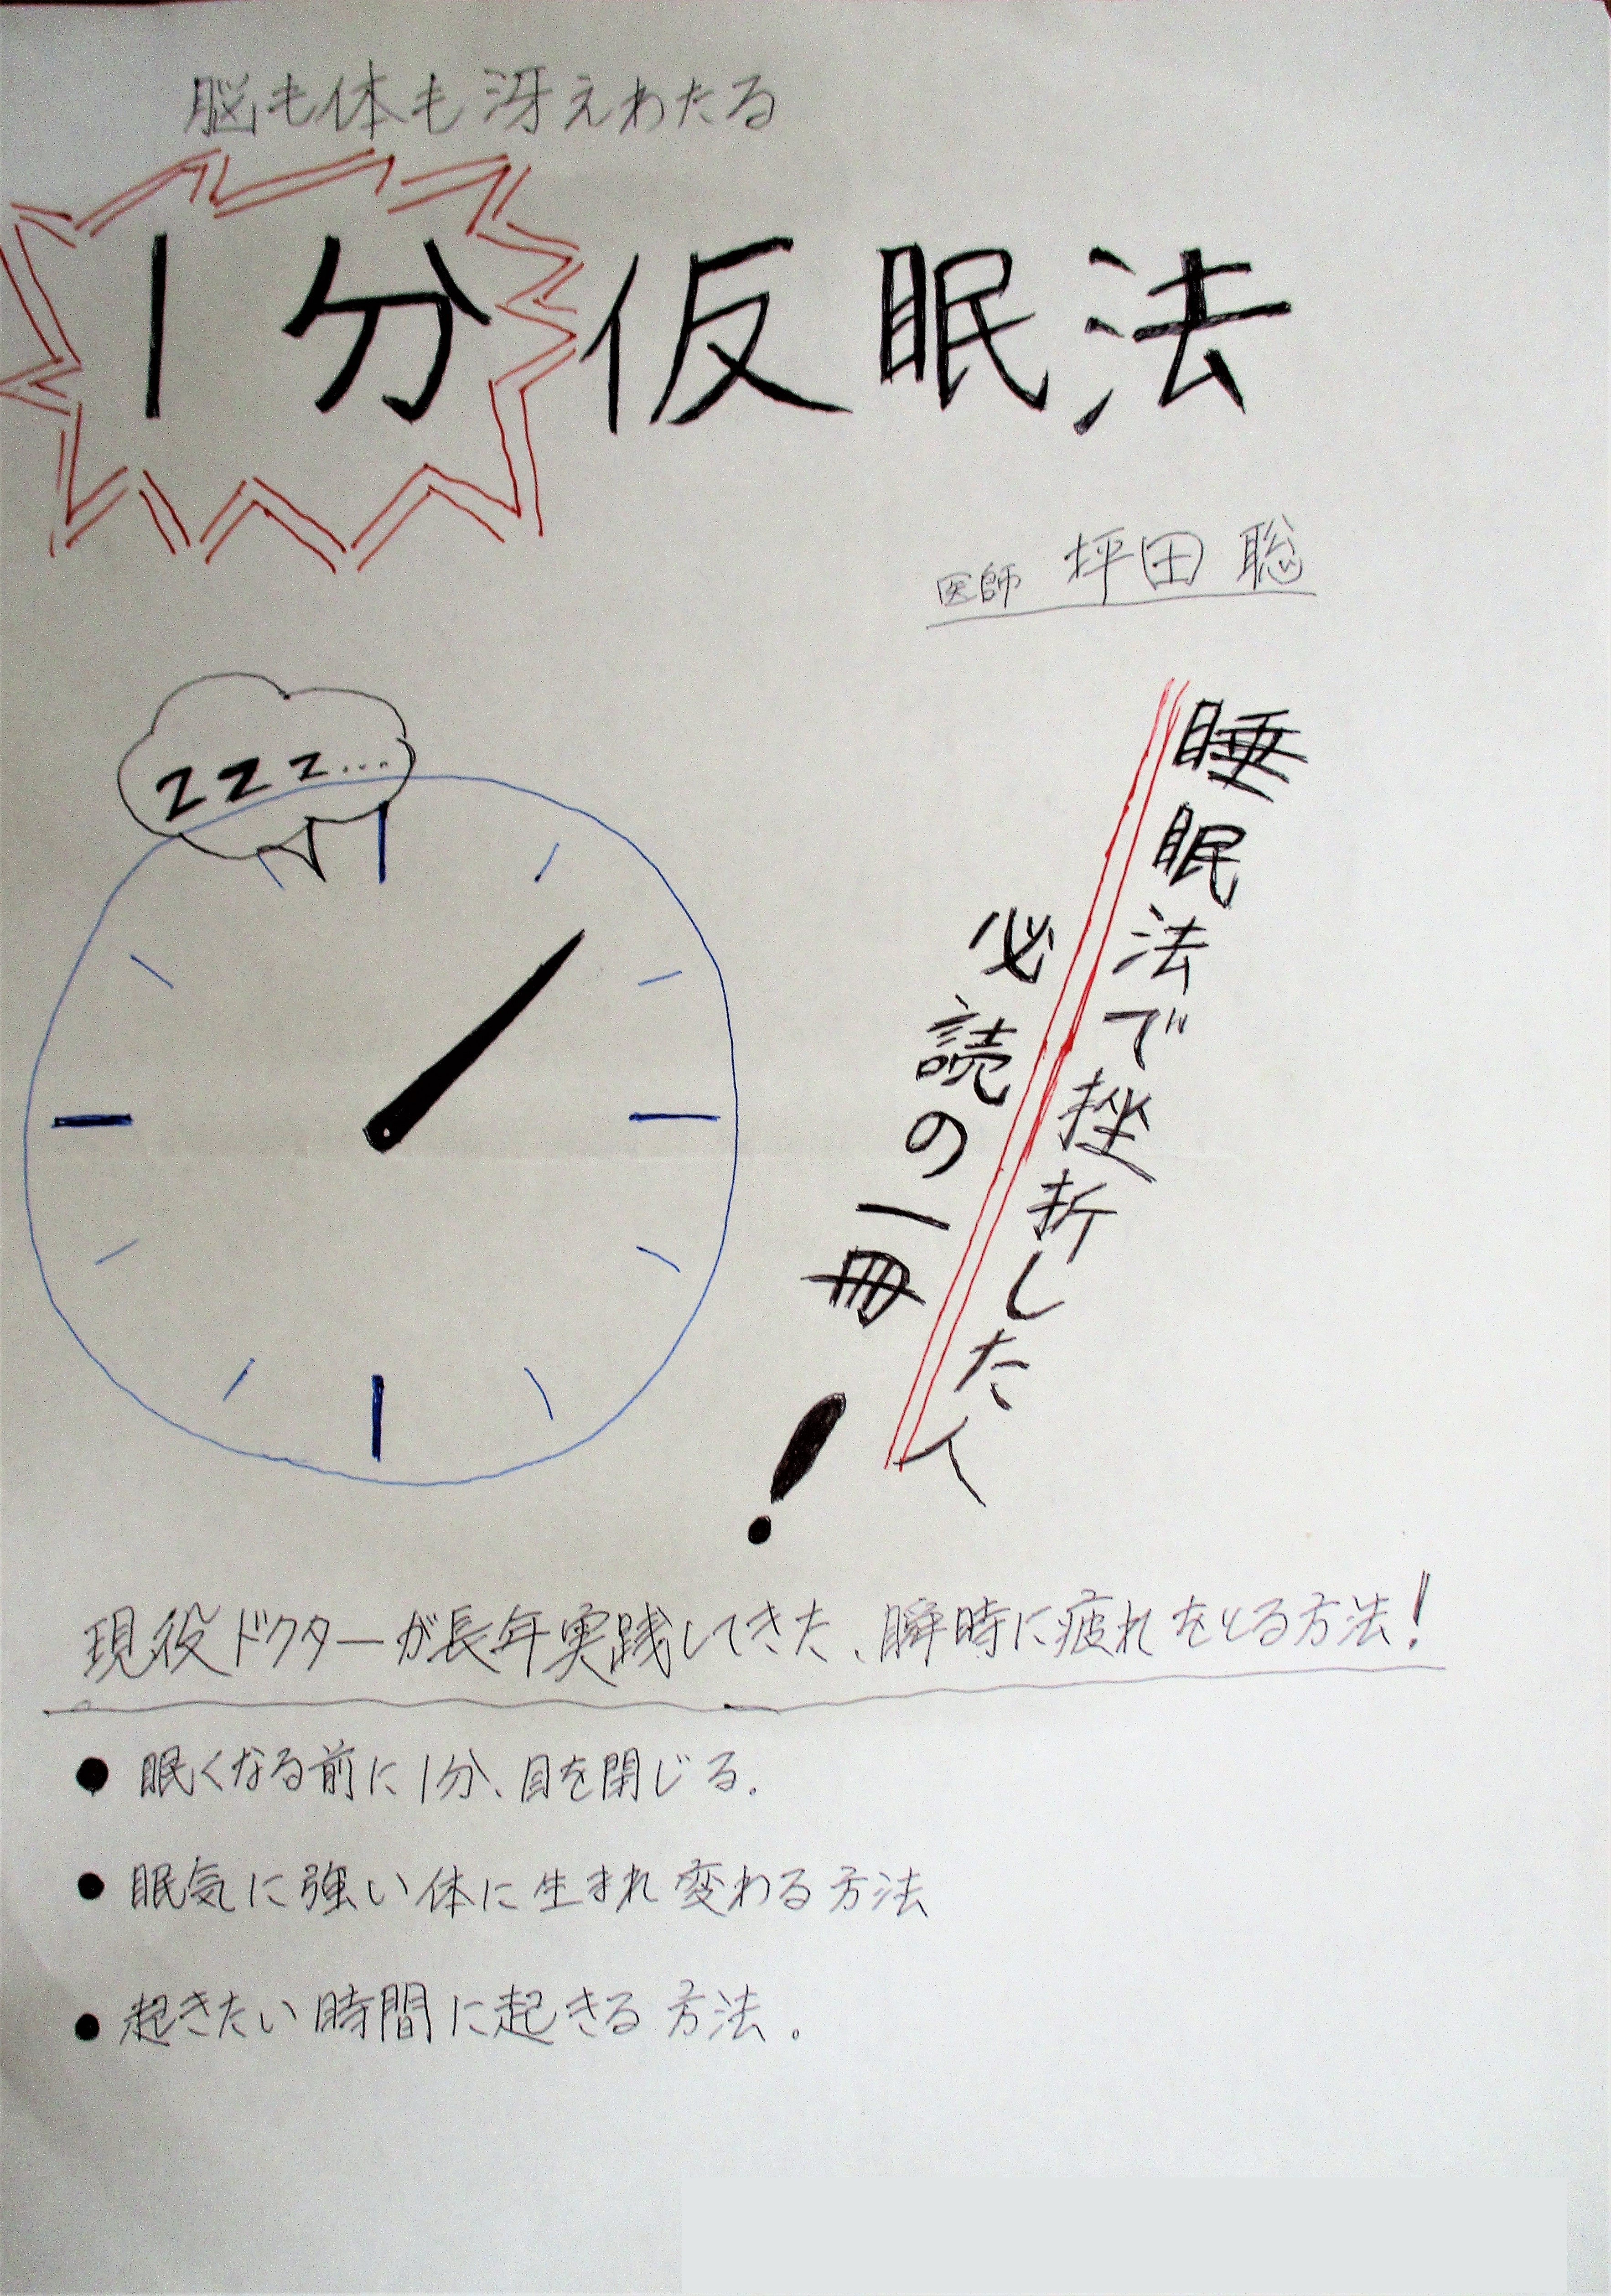 脳も体も冴えわたる
1分仮眠法
医師 坪田 聡
zzz...
睡眠法で挫折した人
必読の一冊!
現役ドクターが長年実践してきた、瞬時に疲れをとる方法!
● 眠くなる前に1分、目を閉じる。
● 眠気に強い体に生まれ変わる方法
● 起きたい時間に起きる方法。